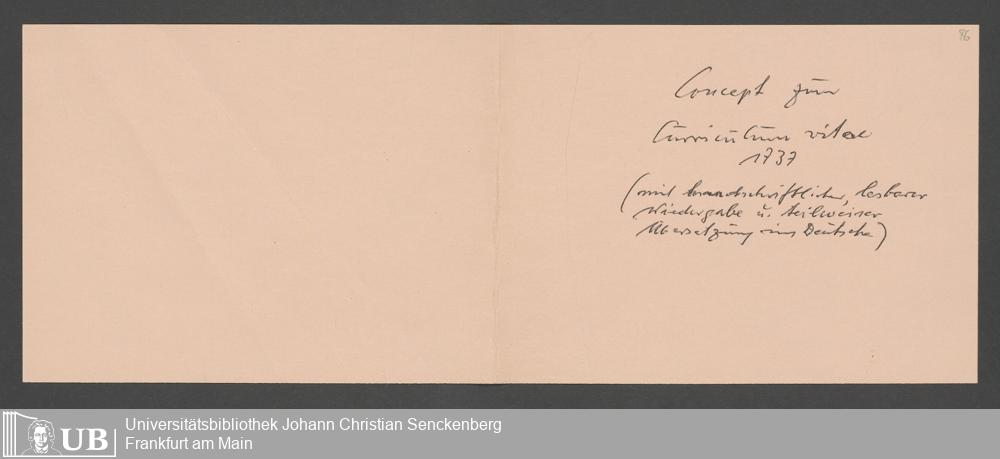 86
Concept zum
Curriculum vitae
1737
(mit handschriftlicher, lesbarer
Wiedergabe u. teilweiser
Übersetzung ins Deutsche)
UB
Universitätsbibliothek Johann Christian Senckenberg
Frankfurt am Main